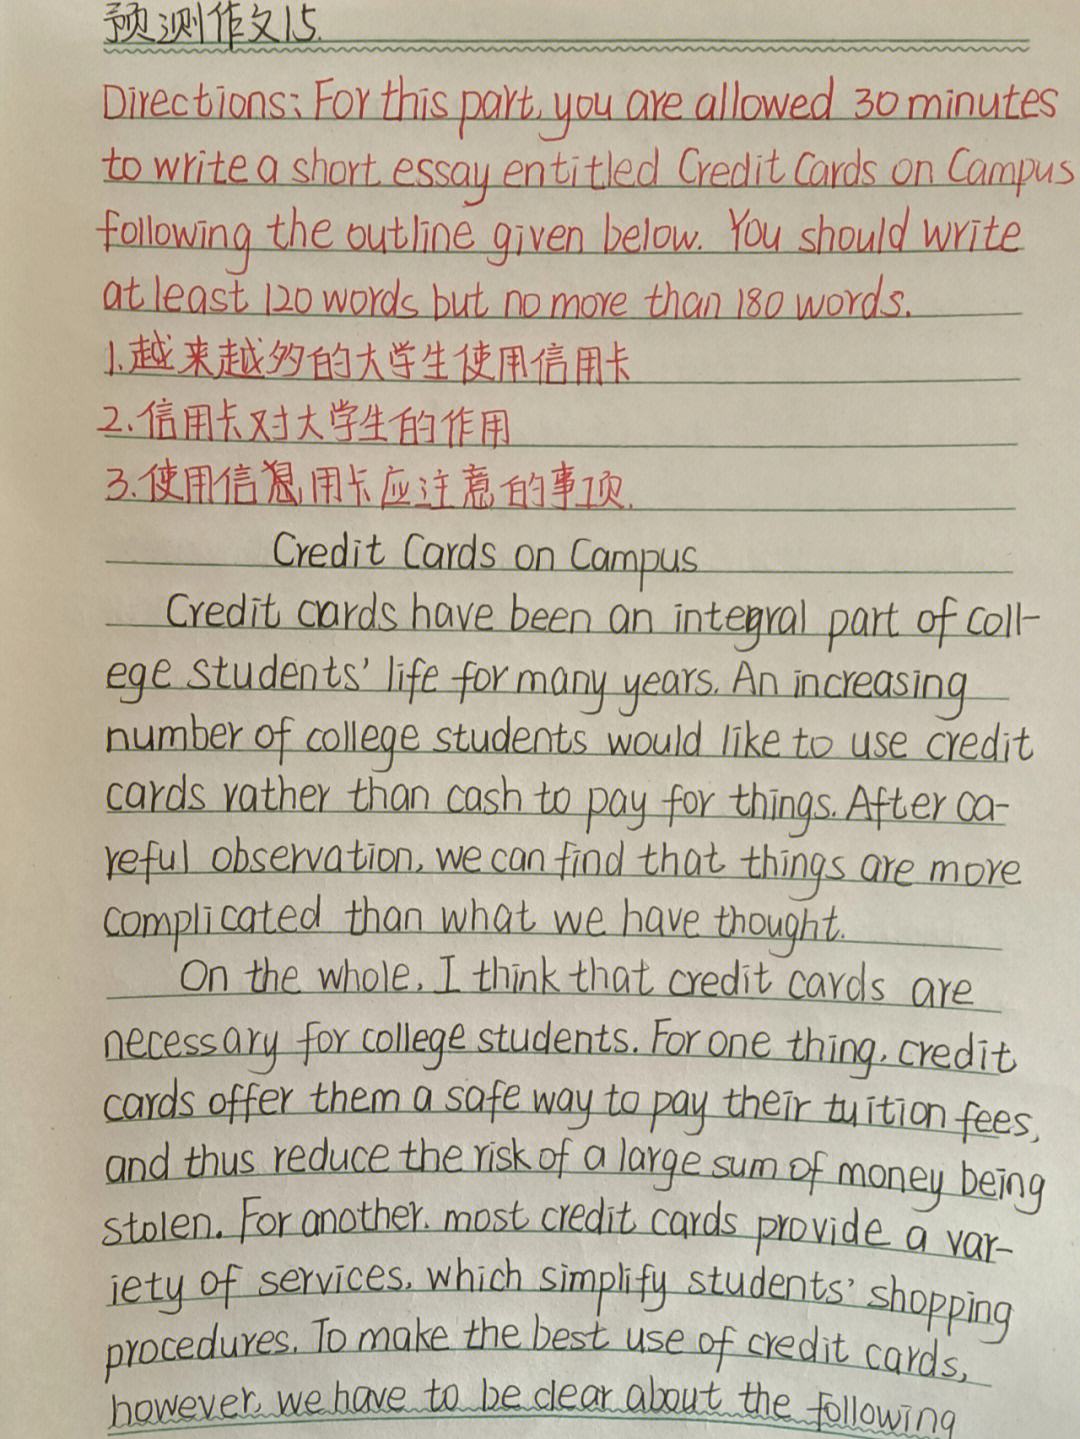 预测作文15.
Directions: For this part, you are allowed 30 minutes
to write a short essay entitled Credit Cards on Campus
following the outline given below. You should write
at least 120 words but no more than 180 words.
1.越来越多的大学生使用信用卡
2.信用卡对大学生的作用
3.使用信用卡应注意的事项.
Credit Cards on Campus
Credit cards have been an integral part of coll-
ege students' life for many years. An increasing
number of college students would like to use credit
cards rather than cash to pay for things. After ca-
reful observation, we can find that things are more
complicated than what we have thought.
On the whole, I think that credit cards are
necessary for college students. For one thing, credit
cards offer them a safe way to pay their tuition fees,
and thus reduce the risk of a large sum of money being
stolen. For another, most credit cards provide a var-
iety of services, which simplify students' shopping
procedures. To make the best use of credit cards,
however, we have to be clear about the following